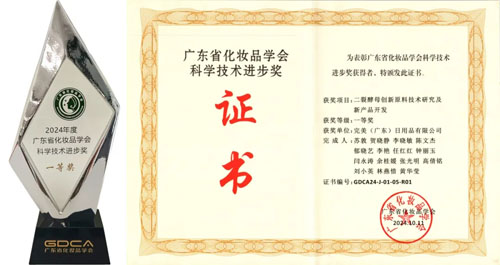 2024年度
广东省化妆品学会
科学技术进步奖
一等奖
GDCA
广东省化妆品学会
广东省化妆品学会
科学技术进步奖
证书
为表彰广东省化妆品学会科学技术
进步奖获得者，特颁发此证书。
获奖项目：二裂酵母创新原料技术研究及
新产品开发
获奖等级：一等奖
获奖单位：完美（广东）日用品有限公司
完成人：苏敦 贺晓静 李晓敏 陈文杰
郁晓艺 李艳 任红红 钟丽玉
闫水涛 余桂媛 张光明 高倩铭
刘小英 林燕惜 黄华莹
证书编号：GDCA24-J-01-05-R01
广东省化妆品学会
2024.10.11